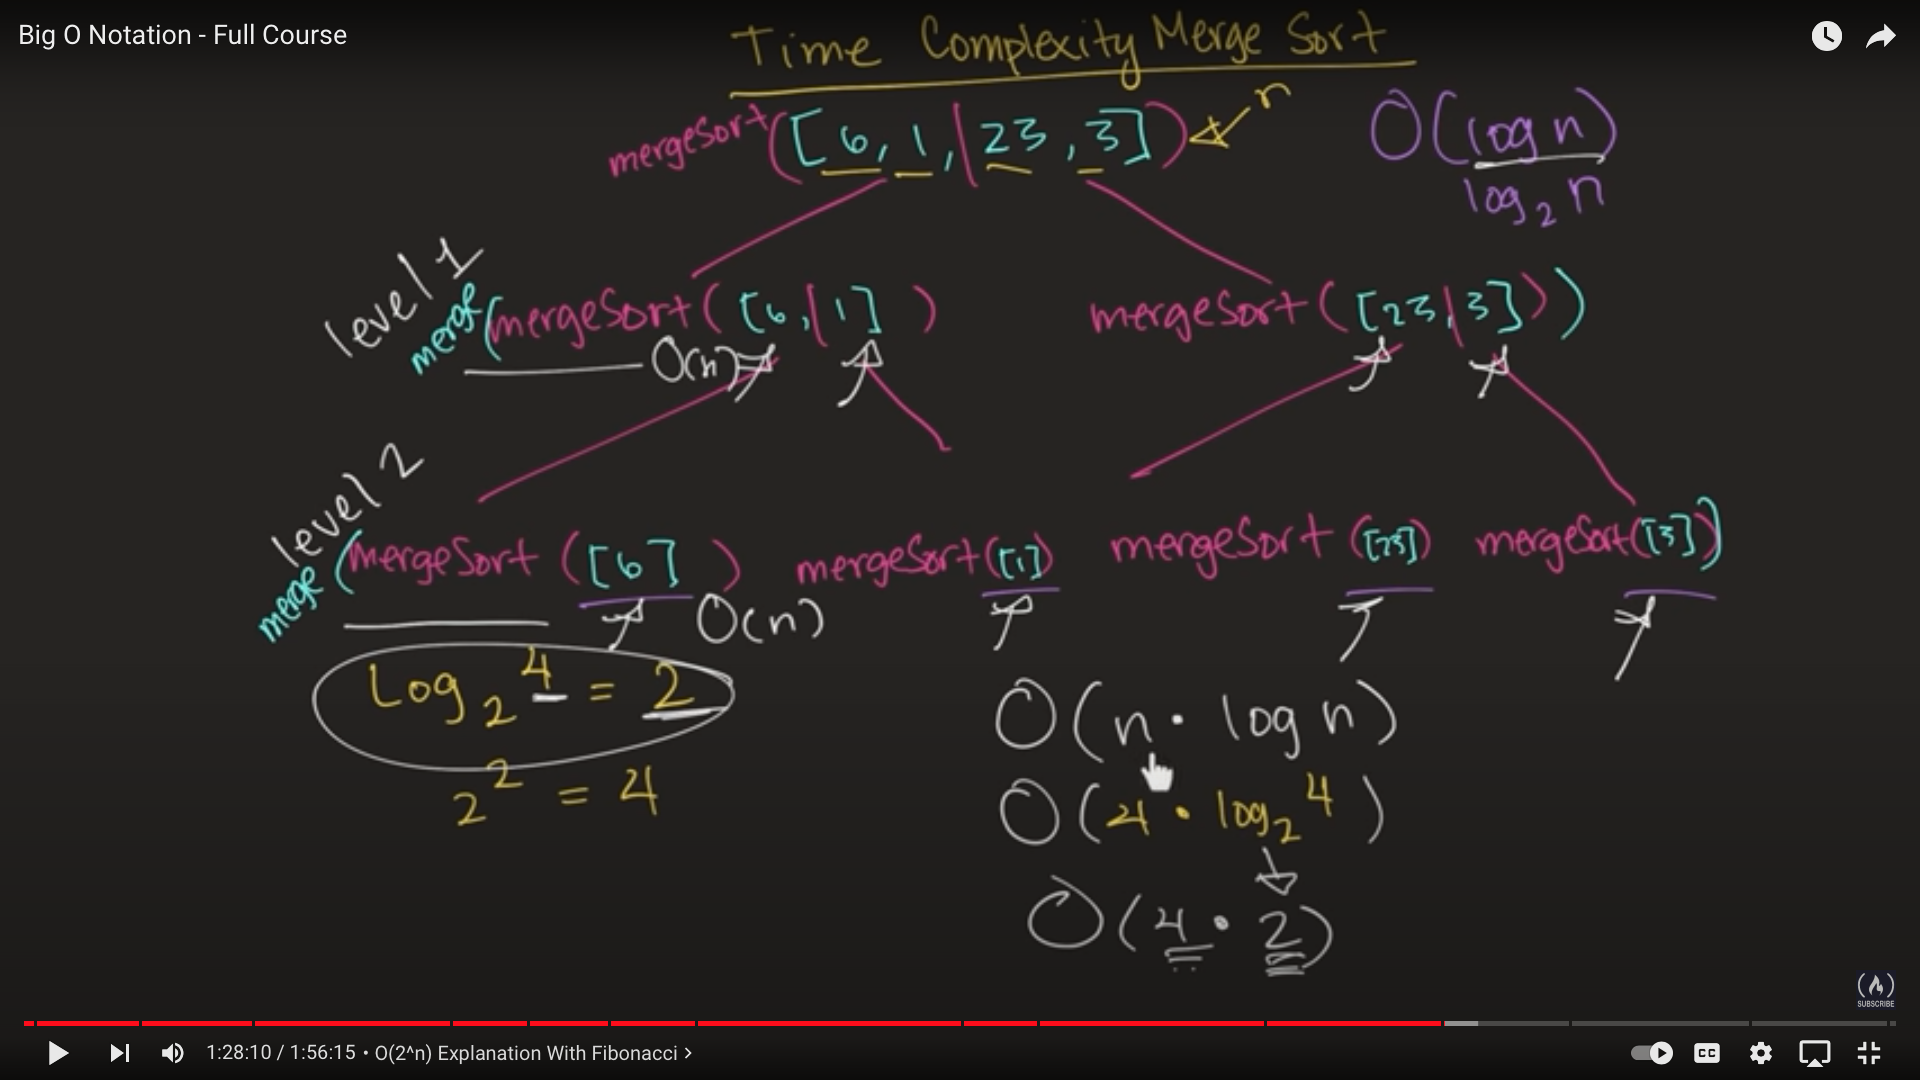 Big O Notation - Full Course
Time Complexity Merge Sort
mergeSort([6, 1, | 23, 3]) n
O(log n)
log₂ n
level 1
merge(mergeSort([6, | 1]) mergeSort([23 | 3]))
O(n)
level 2
merge(mergeSort([6]) mergeSort([1]) mergeSort([23]) mergeSort([3]))
O(n)
Log₂ 4 = 2
2² = 4
O(n · log n)
O(4 · log₂ 4)
O(4 · 2)
SUBSCRIBE
1:28:10 / 1:56:15 • O(2^n) Explanation With Fibonacci >
CC